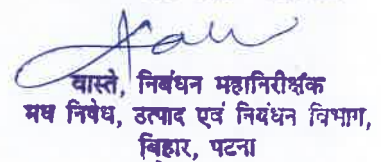 वास्ते, निबंधन महानिरीक्षक
मद्य निषेध, उत्पाद एवं निबंधन विभाग,
बिहार, पटना